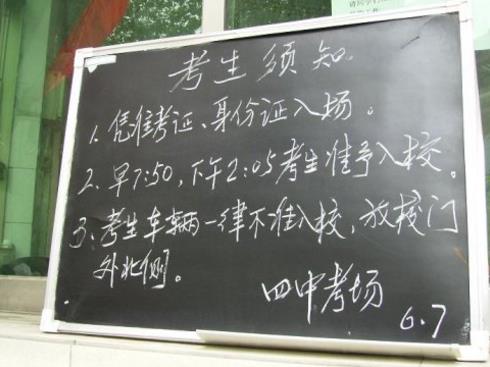 考生须知
1. 凭准考证、身份证入场。
2. 早7:50，下午2:05考生准予入校。
3、考生车辆一律不准入校，放校门
外北侧。
四中考场
6.7